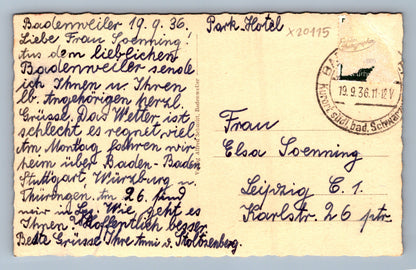 Badenweiler 19.9.36.
Liebe Frau Soenning!
Aus dem lieblichen
Badenweiler sende
ich Ihnen u. Ihren
lb. Angehörigen herzl.
Grüsse. Das Wetter ist
schlecht es regnet viel.
Am Montag fahren wir
heim über Baden-Baden
Stuttgart, Würzburg u.
Thüringen. Am 26. sind
wir in Lpz. Wie geht es
Ihnen? Hoffentlich besser.
Beste Grüsse Ihre Anni v. Stoltzenberg.
Park Hotel
X20115
19.9.36.11-12 V
Kurort südl. bad. Schwarzw
Frau
Elsa Soenning
Leipzig C. 1.
Karlstr. 26 ptr.